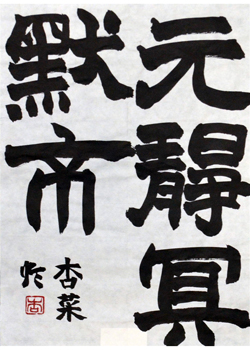 元靜冥
默帝
杏菜
作